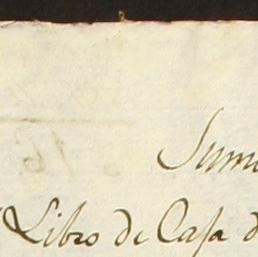 Sum
Libro de Casa d